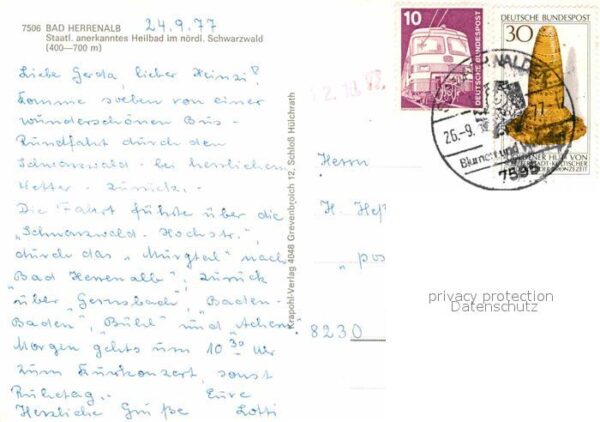 7506 BAD HERRENALB
24.9.77
Staatl. anerkanntes Heilbad im nördl. Schwarzwald
(400—700 m)
Liebe Gerda, lieber Heinzi!
Komme soeben von einer
wunderschönen Bus-
Rundfahrt durch den
Schwarzwald - bei herrlichem
Wetter - zurück.
Die Fahrt führte über die
"Schwarzwald-Hochstr.",
durch das "Murgtal" nach
"Bad Herrenalb", zurück
über "Gernsbach", "Baden-
Baden", "Bühl" und "Achern".
Morgen gehts um 10 30 Uhr
zum Kurkonzert, sonst
Ruhetag. - Eure
Herzliche Grüße Lotti
Krapohl-Verlag 4048 Grevenbroich 12, Schloß Hülchrath
10
DEUTSCHE BUNDESPOST
DEUTSCHE BUNDESPOST
30
26.-9.
Blumen und
7595
GOLDENER HUT VON
BRONZEZEIT
Herrn
H. Heß
"pos
8230
privacy protection
Datenschutz